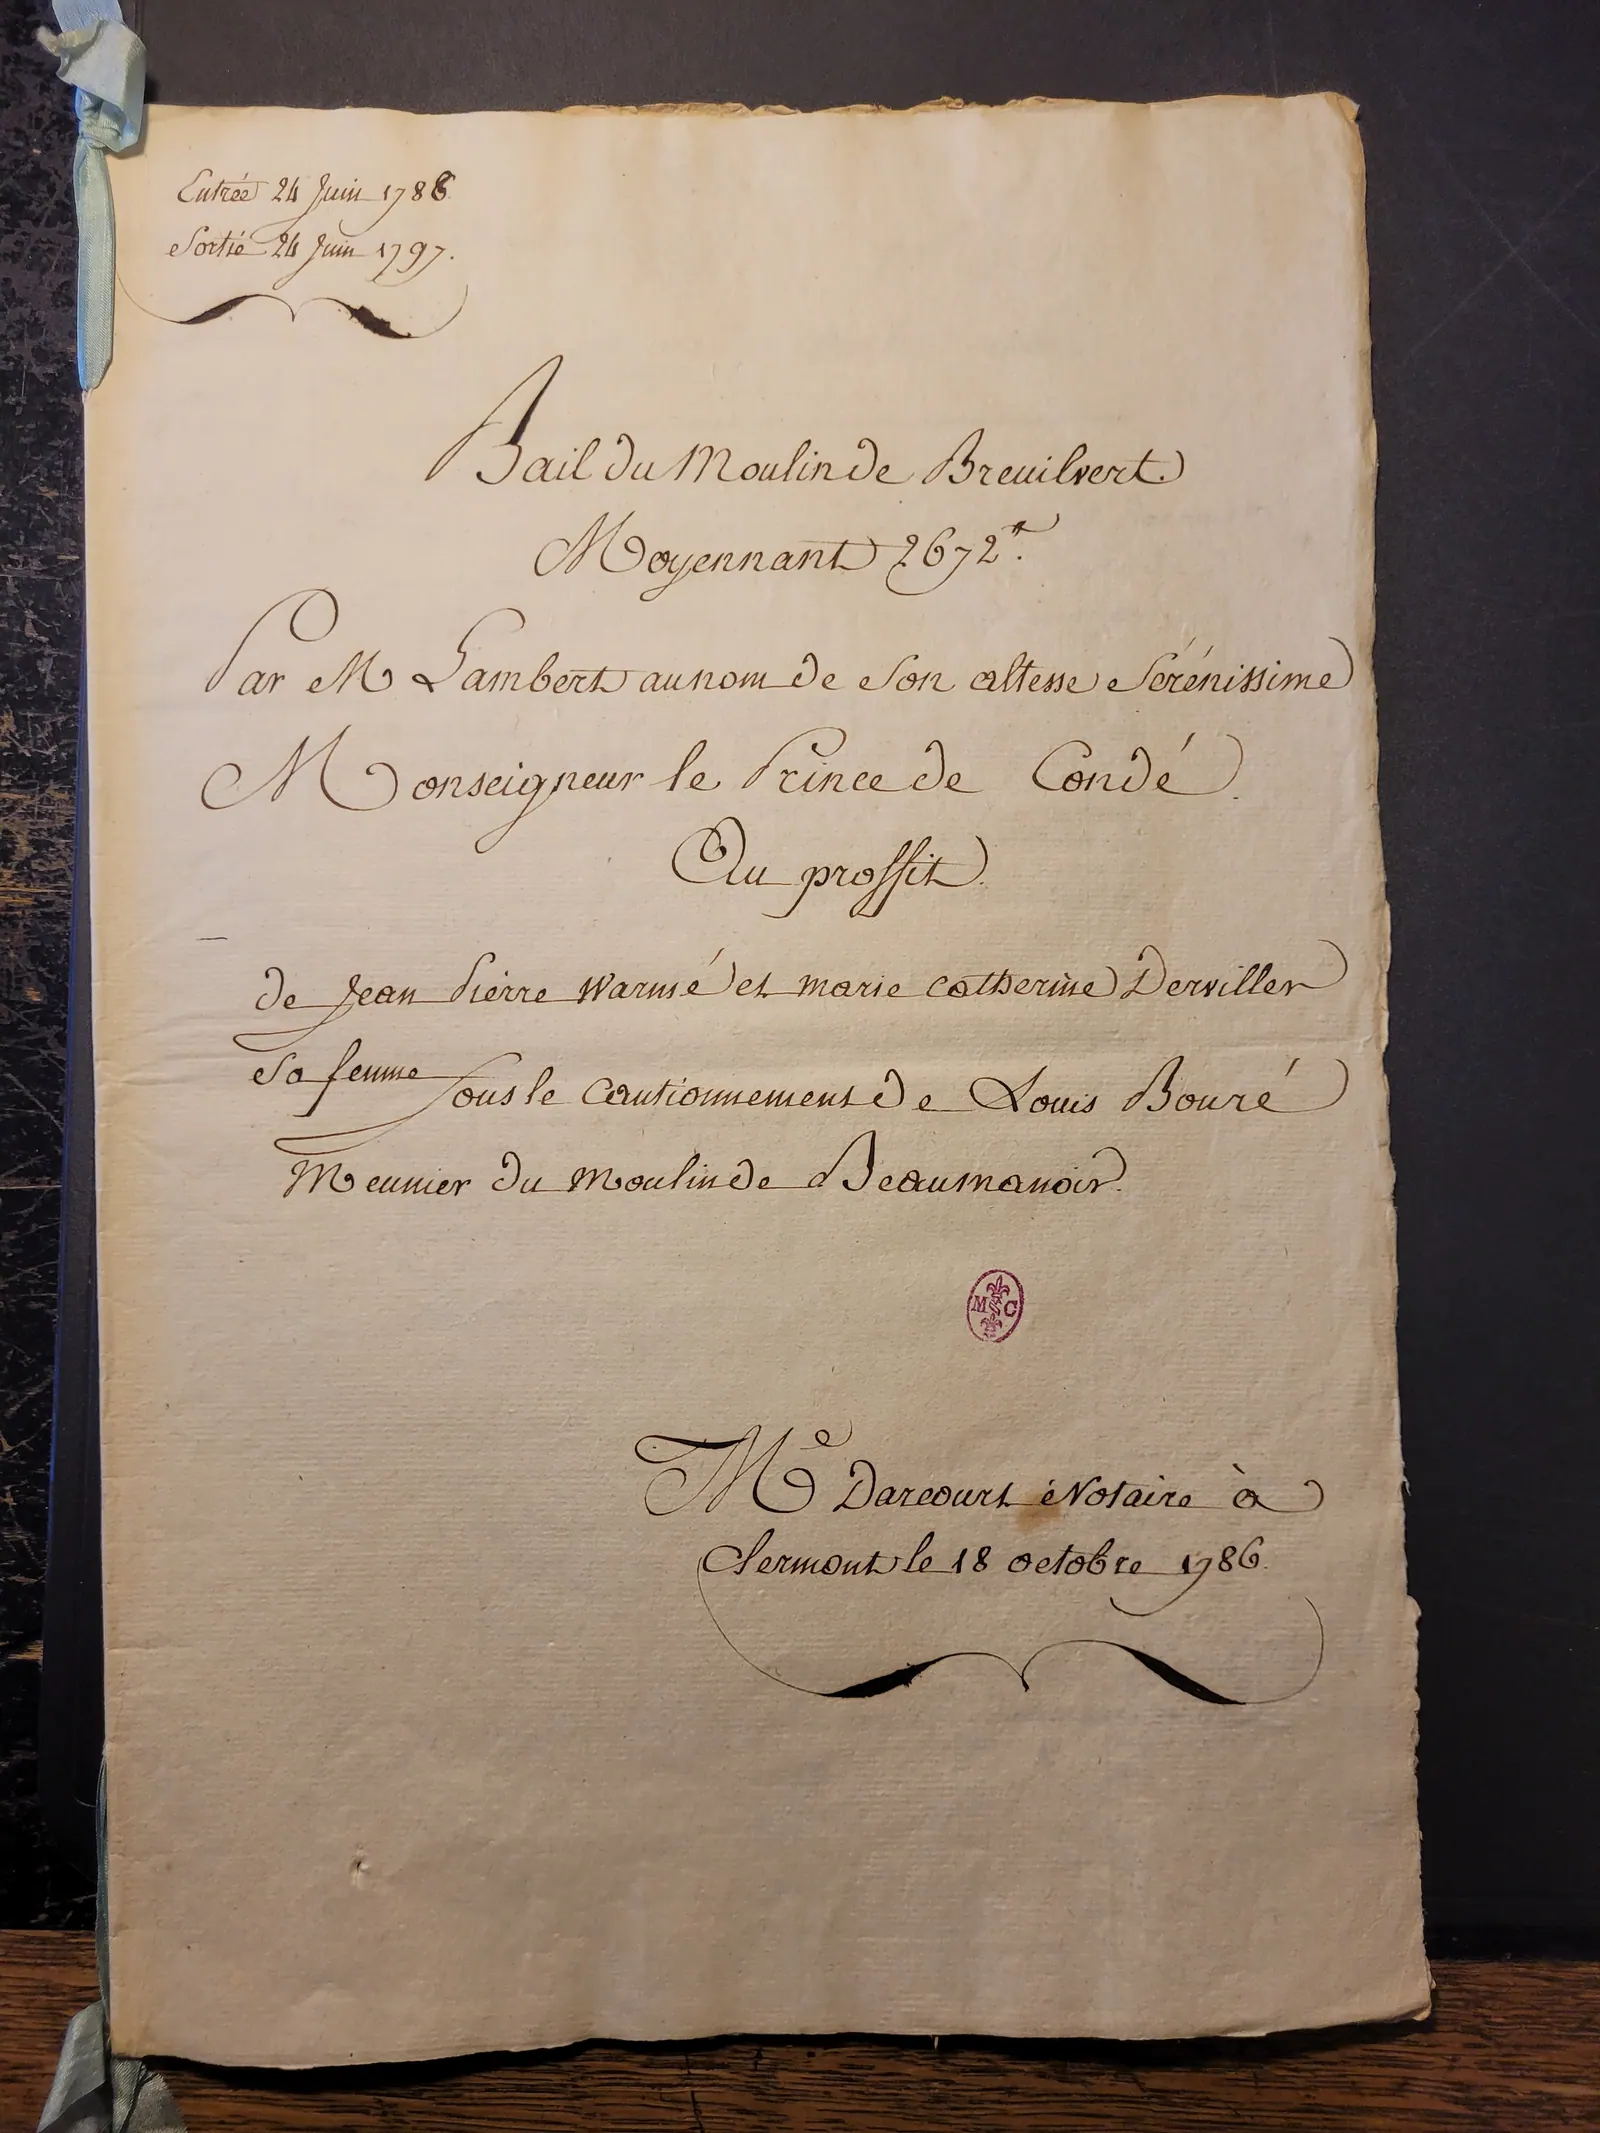 Entrée 24 Juin 1788
Sortie 24 Juin 1797.
Bail du Moulin de Breuilvert.
Moyennant 2672ᵗᵗ.
Par M Lambert au nom de Son altesse Sérénissime
Monseigneur le Prince de Condé.
Au proffit
de Jean Pierre Warmé et marie catherine Derviller
Sa femme Sous le Cautionnement de Louis Bouré
Meunier du Moulin de Beaumanoir.
M C
Mᵉ Darcourt Notaire à
Clermont le 18 octobre 1786.